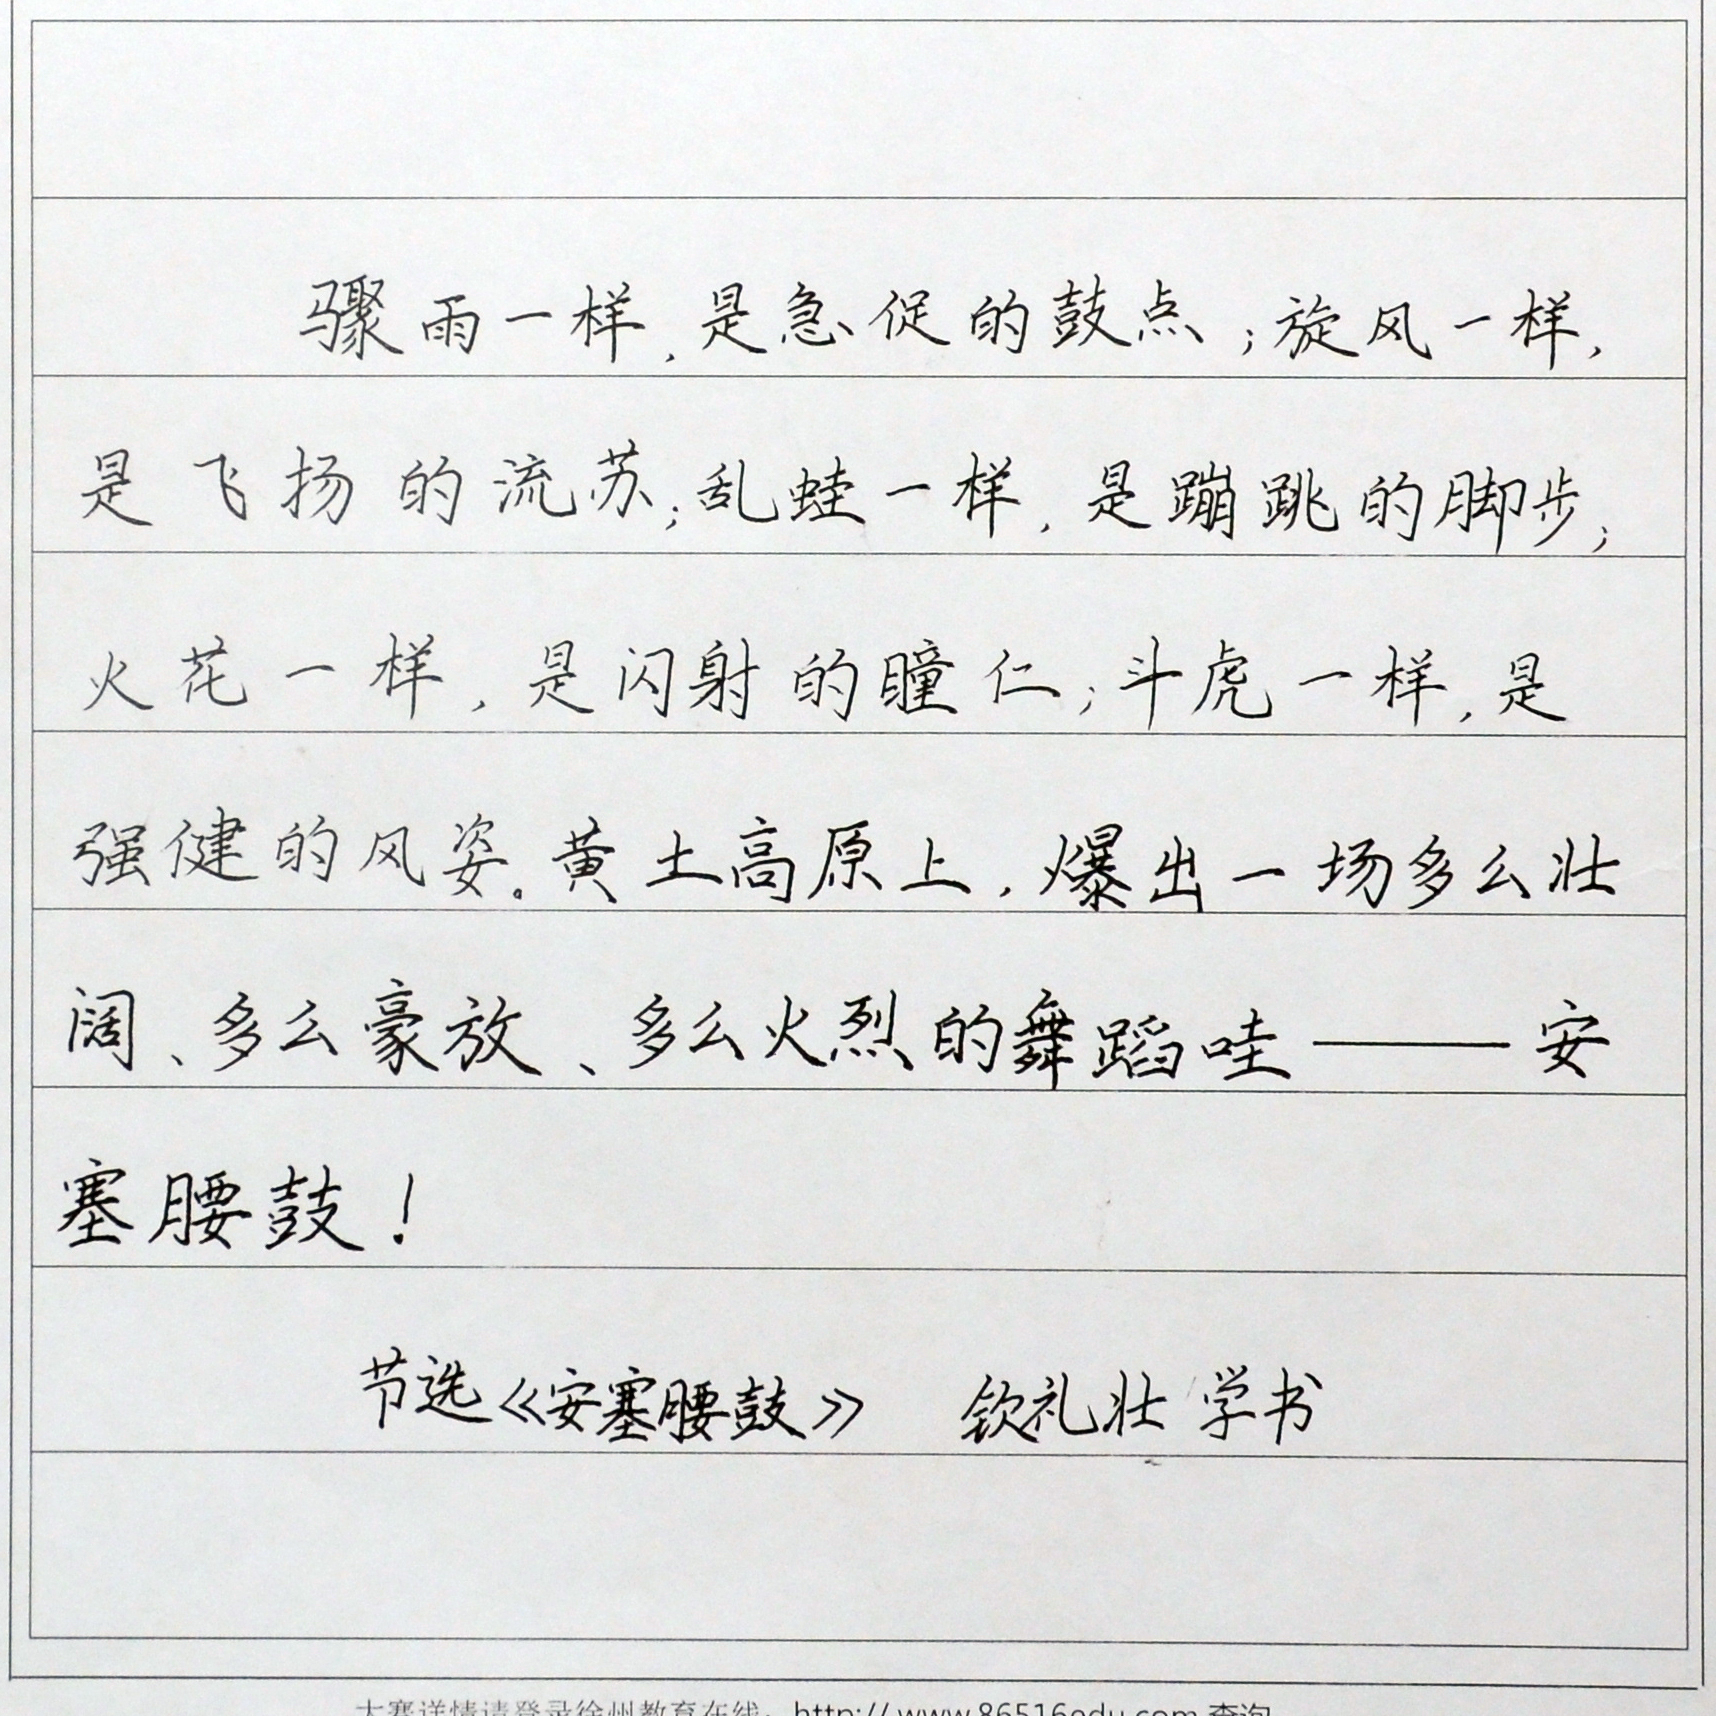 骤雨一样，是急促的鼓点；旋风一样，
是飞扬的流苏；乱蛙一样，是蹦跳的脚步；
火花一样，是闪射的瞳仁；斗虎一样，是
强健的风姿。黄土高原上，爆出一场多么壮
阔、多么豪放、多么火烈的舞蹈哇——安
塞腰鼓！
节选《安塞腰鼓》 钦礼壮 学书
大赛详情请登录徐州教育在线：http://www.86516edu.com 查询